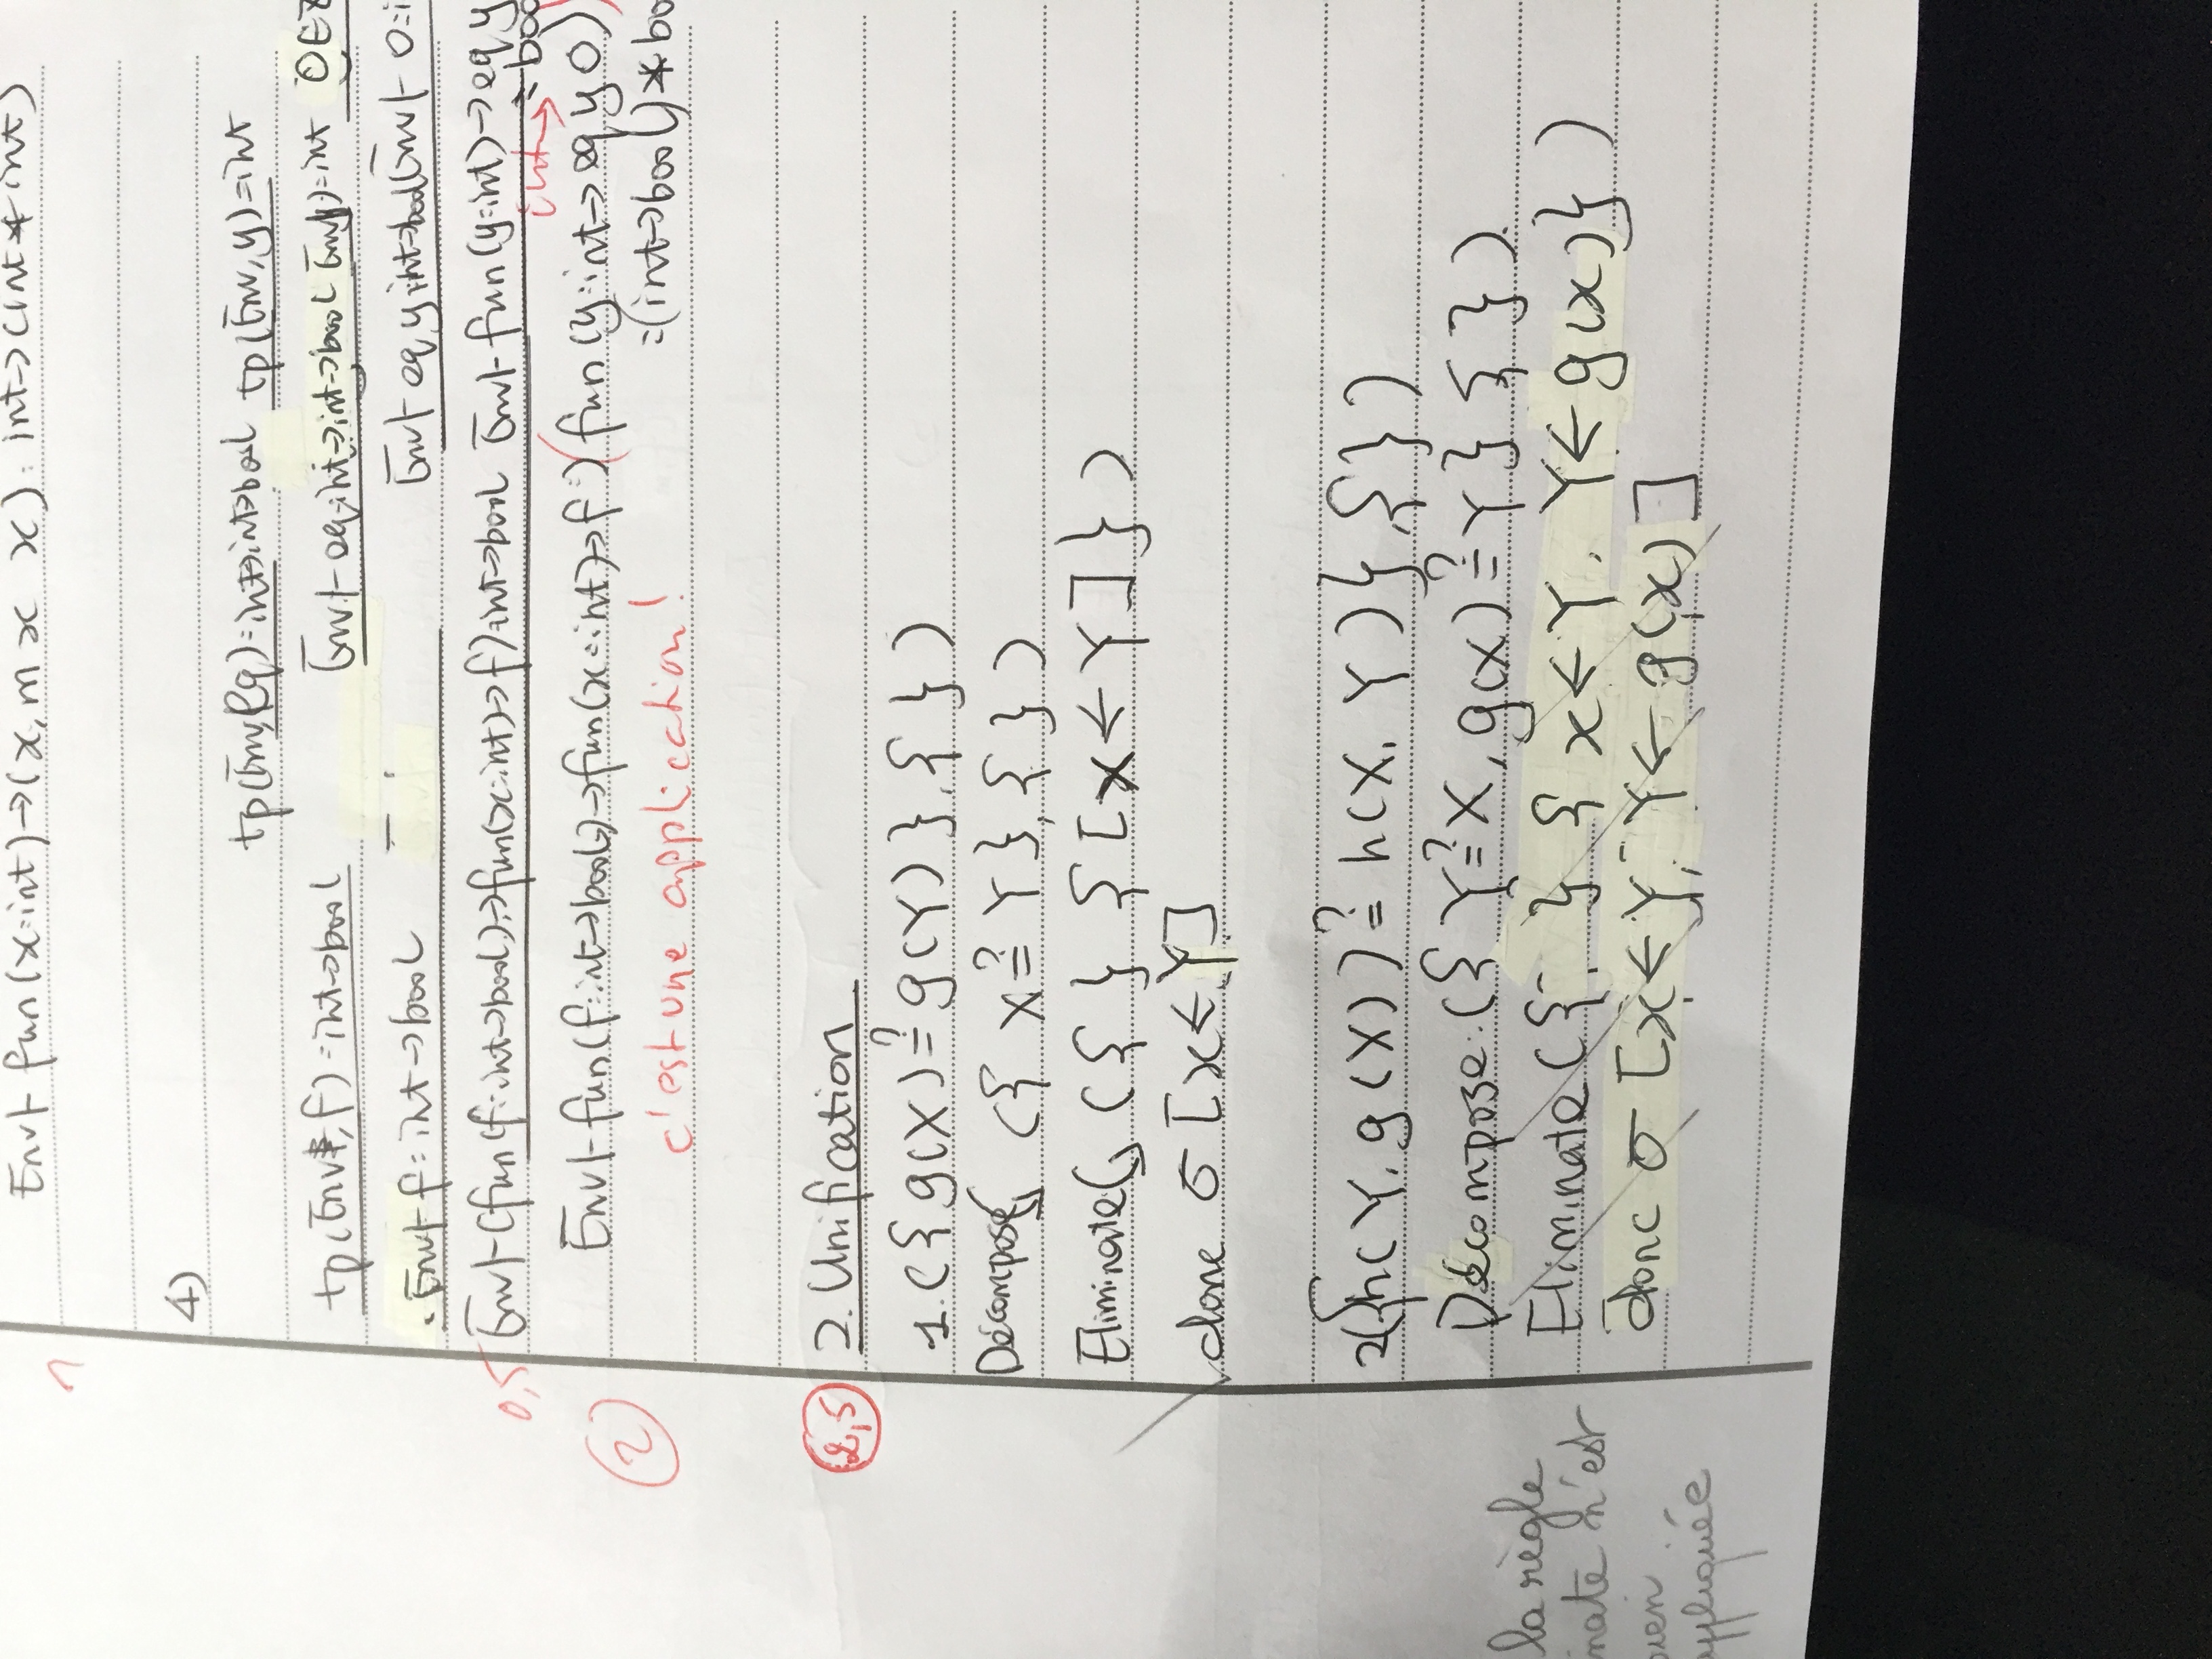 Env ⊢ fun(x:int)→(x, m x x) : int→(int * int)
1
4)
tp(Env, eq)=int→int→bool tp(Env, y)=int
tp(Env, f)=int→bool Env ⊢ eq:int→int→bool Env y)=int 0∈Z
Env ⊢ f: int→bool Env ⊢ eq y:int→bool Env ⊢ 0:i
0,5 Env ⊢ (fun(f:int→bool)→fun(x:int)→f):int→bool Env ⊢ fun(y:int)→eq y
int→ : boo
2 Env ⊢ fun(f:int→bool)→fun(x:int)→f ) (fun (y:int→ eq y 0))
:(int→bool)*bo
c'est une application!
2,5 2. Unification
1. ({ g(X) ≟ g(Y) }, { })
Décompose ({ X ≟ Y }, { })
Eliminate ({ } { [x ← Y] })
donc σ [x ← Y]
2({h(Y, g(X)) ≟ h(X, Y)}, { })
Décompose: ({ Y ≟ X, g(x) ≟ Y } { }).
Eliminate ({ } { x ← Y, Y ← g(x)})
donc σ [x ← Y, Y ← g(x)]
la règle
nate n'est
bien
appliquée